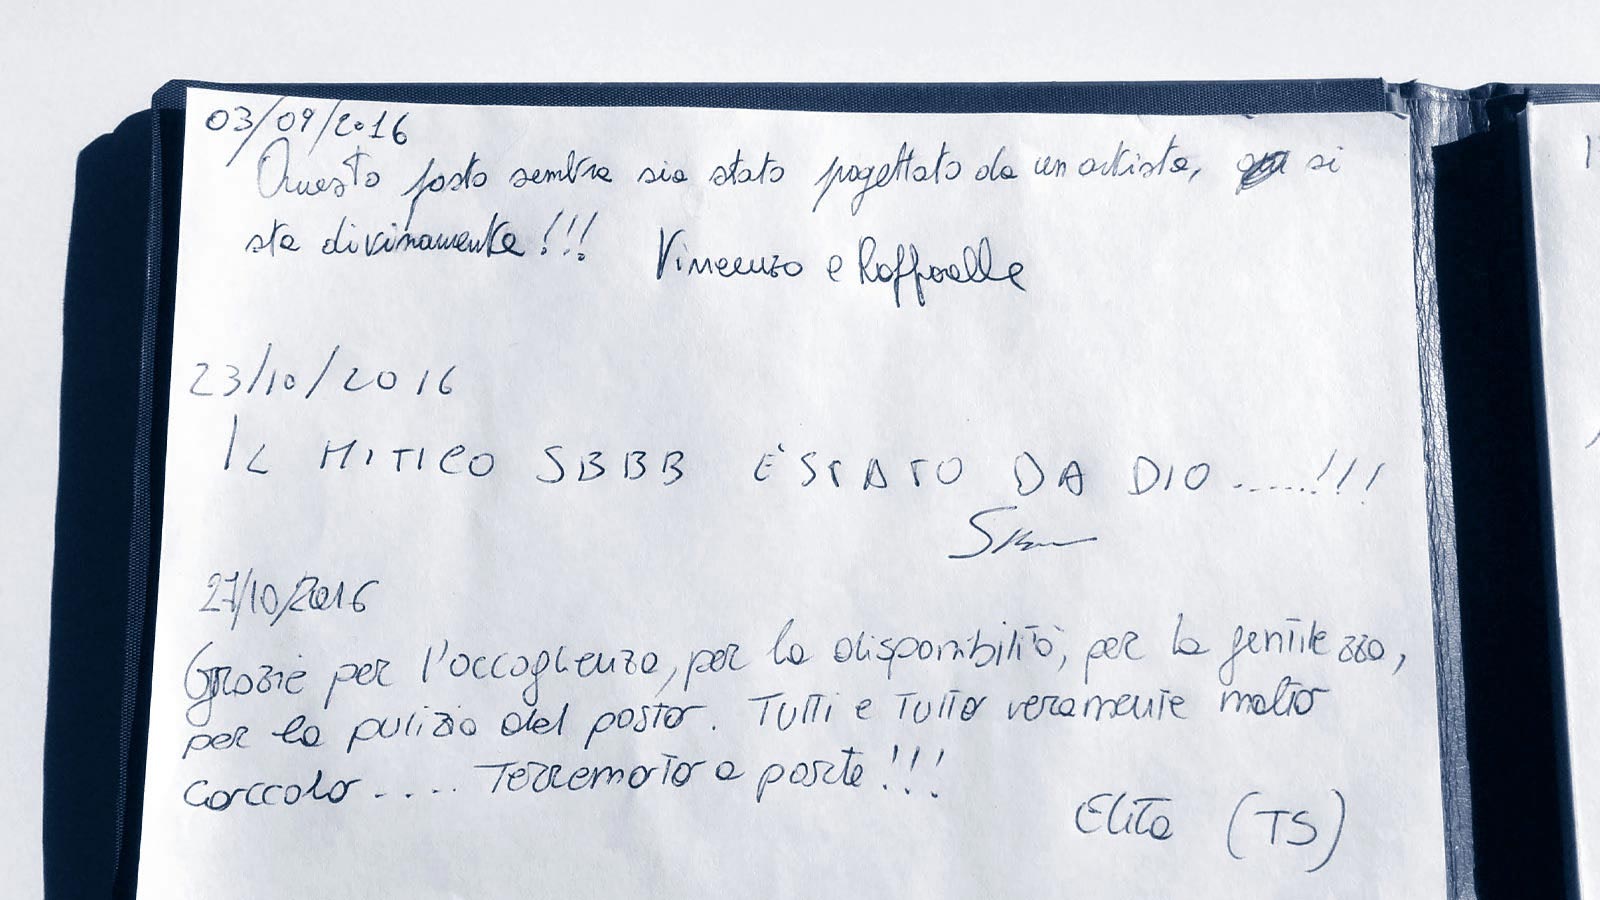 03/09/2016
Questo posto sembra sia stato progettato da un artista, si
sta divinamente!!!
Vincenzo e Raffaella
23/10/2016
IL MITICO SBBB È STATO DA DIO......!!!
27/10/2016
Grazie per l'accoglienza, per la disponibilità, per la gentilezza,
per la pulizia del posto. Tutti e Tutto veramente molto
coccolo.... Terremoto a parte!!!
Elita (TS)